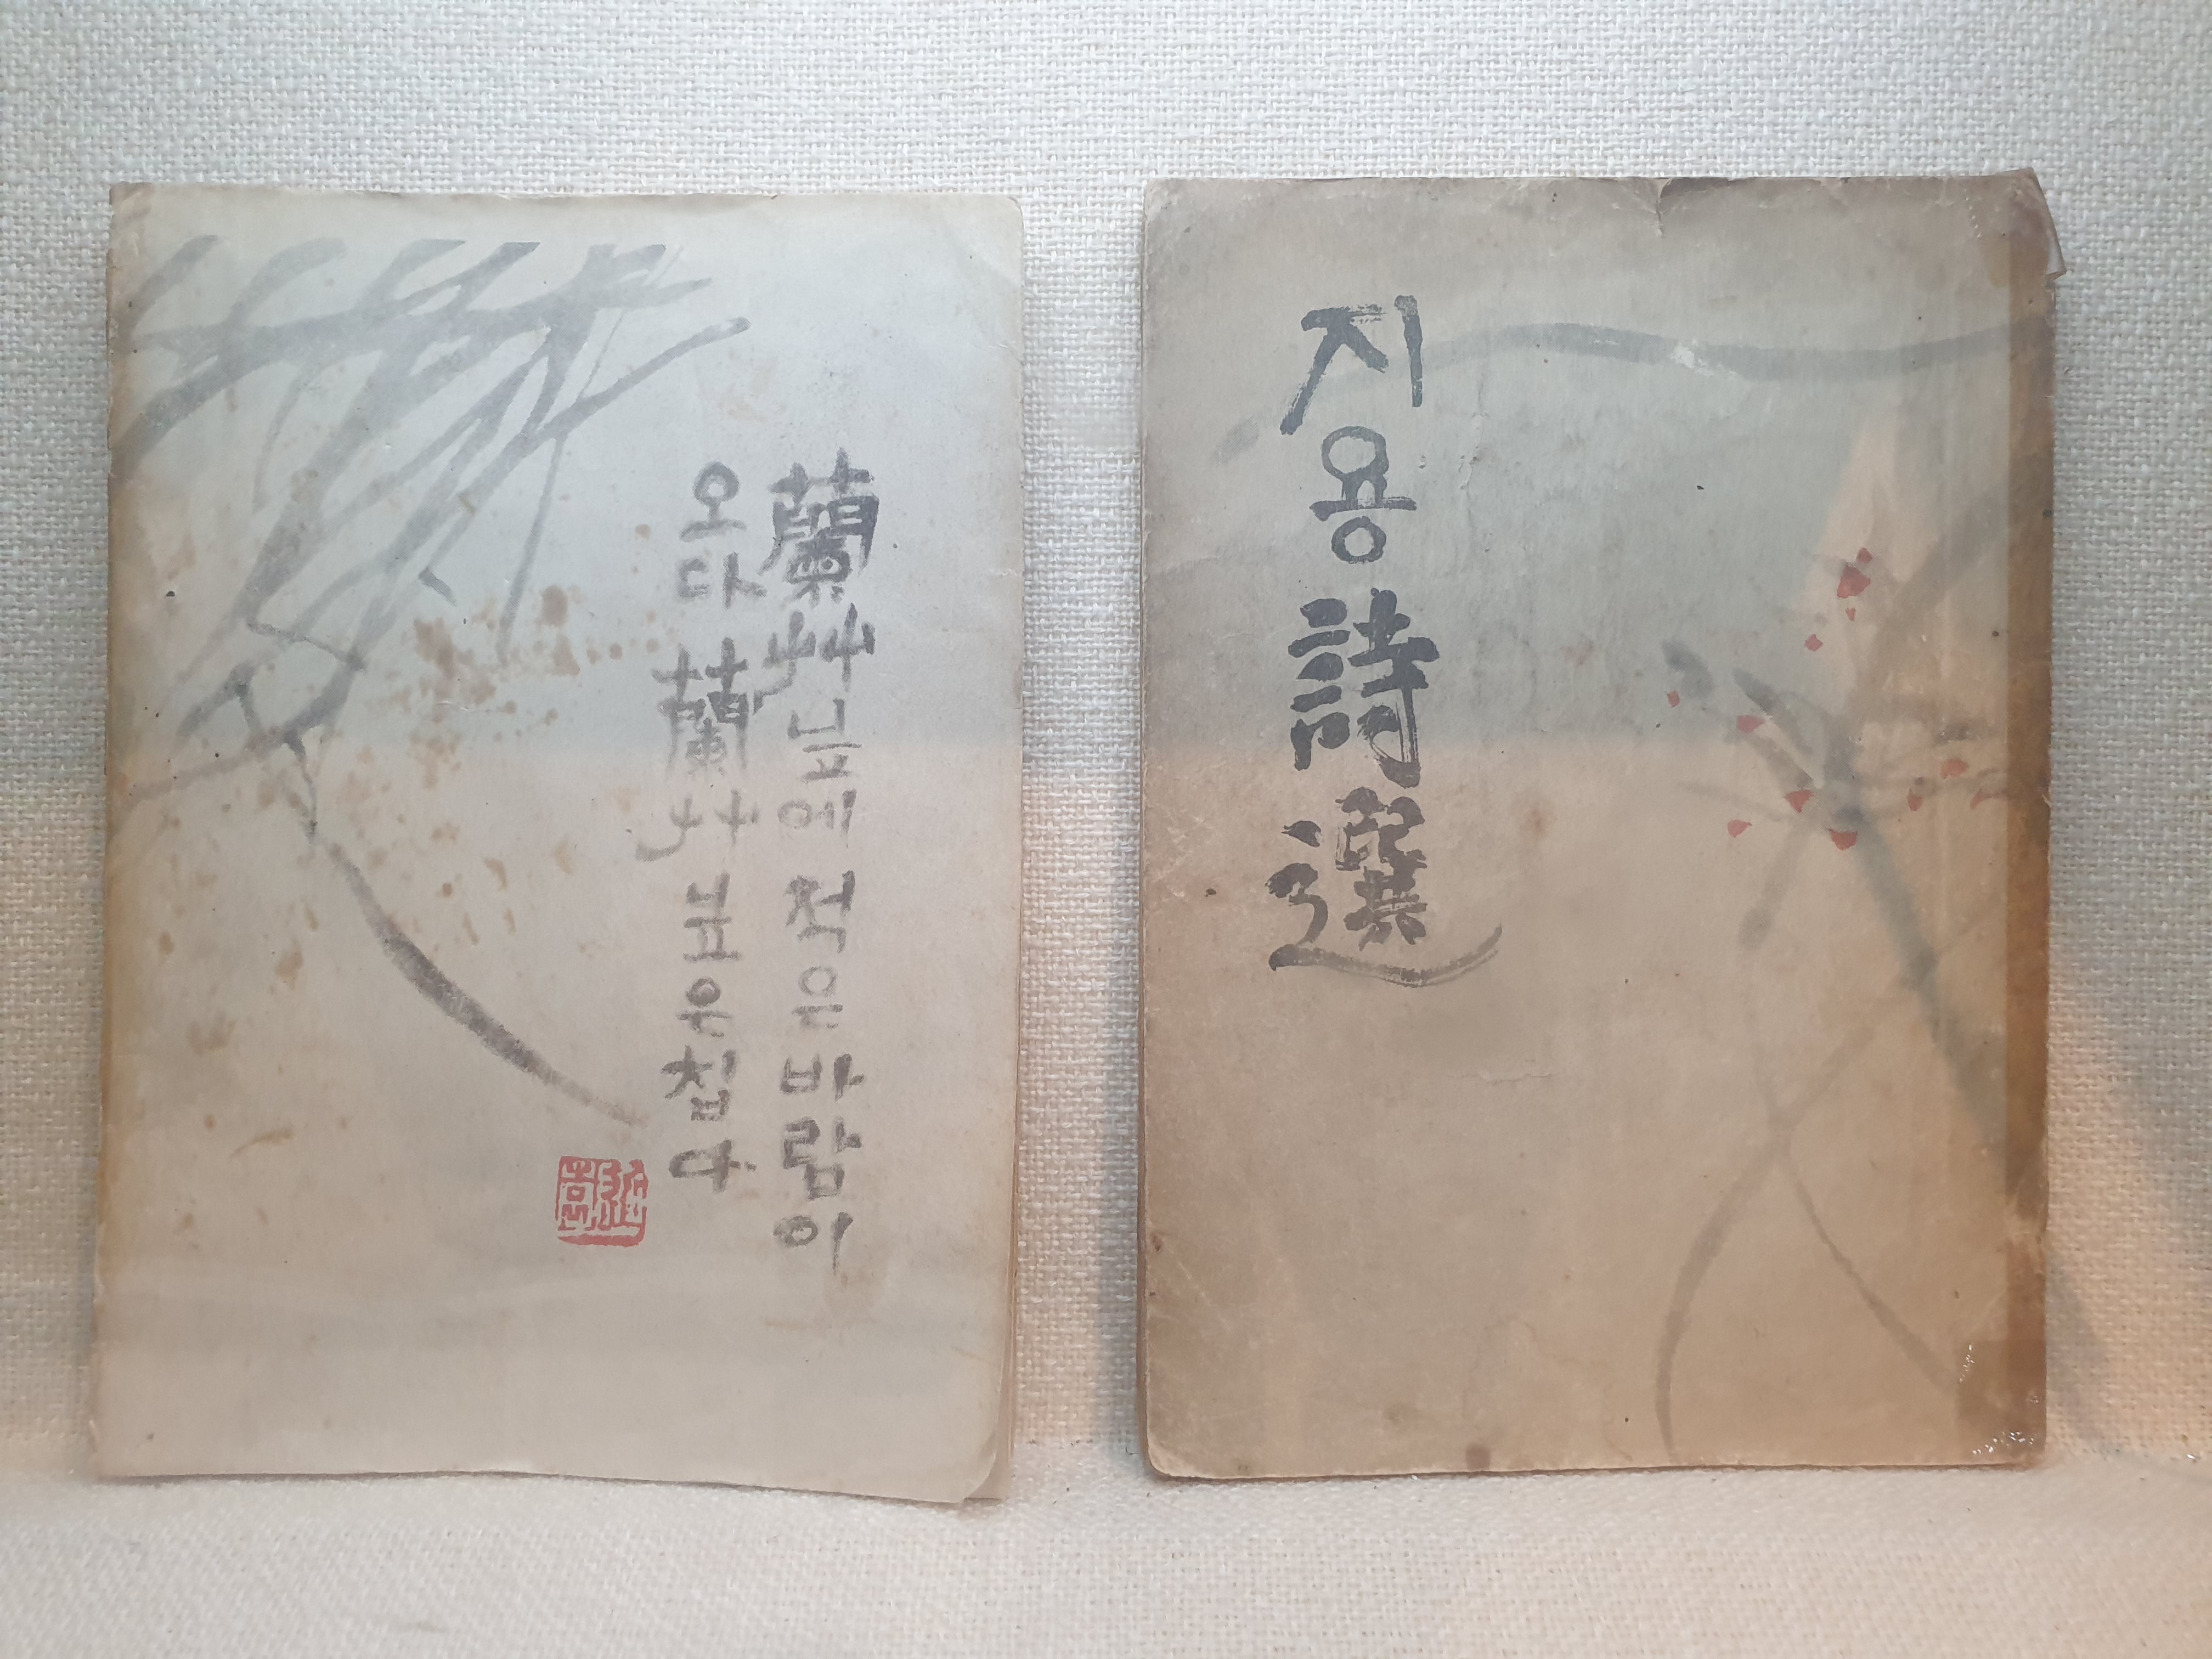 蘭艸닢에 적은 바람이
오다 蘭艸닢은 칩다
지용詩選